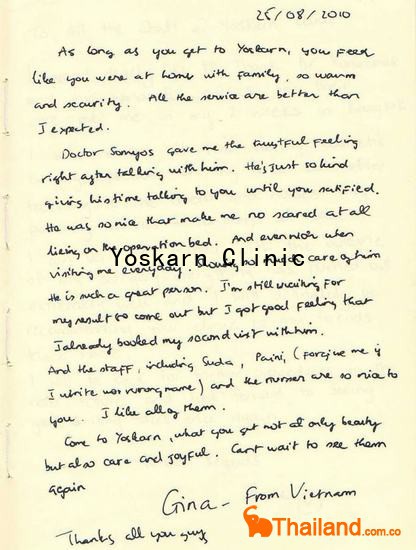 25/08/2010
As long as you get to Yoskarn, you feel
like you were at home with family, so warm
and scacurity. All the service are better than
I expected.
Doctor Somyos gave me the trustful feeling
right after talking with him. He's just so kind
giving his time talking to you until you satisfied.
He was so nice that make me no scared at all
lieing on the operation bed. And even now when
Yoskarn Clinic
visiting me everyday. Showing so much care of him
He is such a great person. I'm still waiting for
my result to come out but I got good feeling that
I already booked my second visit with him.
And the staff, including Suda, Paini, (forgive me if
I write wrong name) and the nurses are so nice to
you. I like all of them.
Come to Yoskarn, what you get not at only beauty
but also care and joyful. Can't wait to see them
again
Gina - From Vietnam
Thanks all you guys
Thailand.com.co